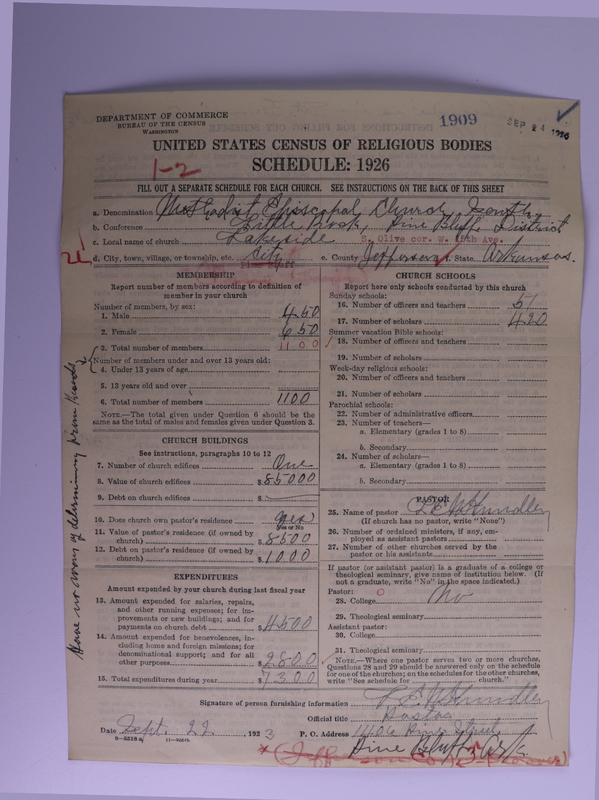 DEPARTMENT OF COMMERCE
BUREAU OF THE CENSUS
WASHINGTON
1909
SEP 24 1926
UNITED STATES CENSUS OF RELIGIOUS BODIES
1-2
SCHEDULE: 1926
FILL OUT A SEPARATE SCHEDULE FOR EACH CHURCH. SEE INSTRUCTIONS ON THE BACK OF THIS SHEET
a. Denomination Methodist Episcopal Church South
b. Conference Little Rock, Pine Bluff District
c. Local name of church Lakeside S. Olive cor. W. 15th Ave.
d. City, town, village, or township, etc. City e. County Jefferson f. State Arkansas.
MEMBERSHIP
Report number of members according to definition of
member in your church
Number of members, by sex:
1. Male 450
2. Female 650
3. Total number of members 1100
Number of members under and over 13 years old:
4. Under 13 years of age
5. 13 years old and over
6. Total number of members 1100
NOTE.—The total given under Question 6 should be the
same as the total of males and females given under Question 3.
Have no way of determining from Records
CHURCH BUILDINGS
See instructions, paragraphs 10 to 12
7. Number of church edifices One
8. Value of church edifices $85000
9. Debt on church edifices $
10. Does church own pastor's residence yes
Yes or No
11. Value of pastor's residence (if owned by
church) $8500
12. Debt on pastor's residence (if owned by
church) $1000
EXPENDITURES
Amount expended by your church during last fiscal year
13. Amount expended for salaries, repairs,
and other running expenses; for im-
provements or new buildings; and for
payments on church debt $4500
14. Amount expended for benevolences, in-
cluding home and foreign missions; for
denominational support; and for all
other purposes $2800
15. Total expenditures during year $7300
CHURCH SCHOOLS
Report here only schools conducted by this church
Sunday schools:
16. Number of officers and teachers 51
17. Number of scholars 420
Summer vacation Bible schools:
18. Number of officers and teachers
19. Number of scholars
Week-day religious schools:
20. Number of officers and teachers
21. Number of scholars
Parochial schools:
22. Number of administrative officers
23. Number of teachers—
a. Elementary (grades 1 to 8)
b. Secondary
24. Number of scholars—
a. Elementary (grades 1 to 8)
b. Secondary
PASTOR
25. Name of pastor
(If church has no pastor, write "None")
26. Number of ordained ministers, if any, em-
ployed as assistant pastors
27. Number of other churches served by the
pastor or his assistants
If pastor (or assistant pastor) is a graduate of a college or
theological seminary, give name of institution below. (If
not a graduate, write "No" in the space indicated.)
Pastor: 0
28. College No
29. Theological seminary
Assistant pastor:
30. College
31. Theological seminary
NOTE.—Where one pastor serves two or more churches,
Questions 28 and 29 should be answered only on the schedule
for one of the churches; on the schedules for the other churches,
write "See schedule for church."
Signature of person furnishing information
Official title Pastor
Date Sept. 22 1923 P. O. Address 1406 Pine Street
Pine Bluff Ark.